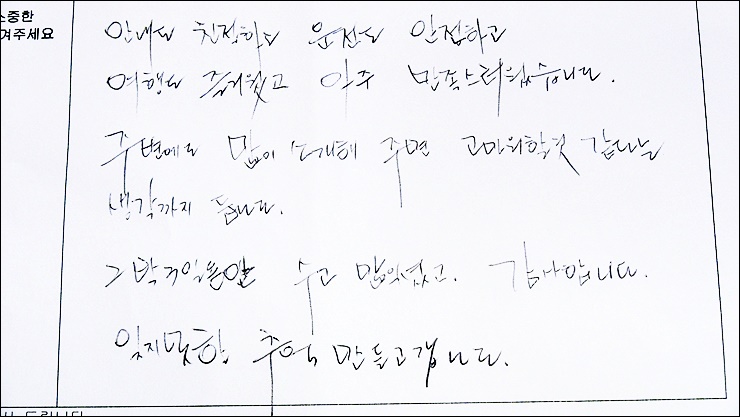 소중한
겨주세요
안내도 친절하고 운전도 안전하고
여행도 즐거웠고 아주 만족스러웠습니다.
주변에도 많이 소개해 주면 고마워할것 같다는
생각까지 듭니다.
수고 많으셨고. 감사합니다.
잊지못할 추억 만들고갑니다.
드립니다